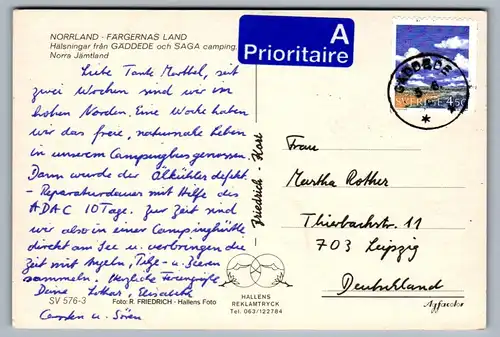 NORRLAND - FÄRGERNAS LAND
Hälsningar från GÄDDEDE och SAGA camping.
Norra Jämtland
Liebe Tante Marthel, seit
zwei Wochen sind wir im
hohen Norden. Eine Woche haben
wir das freie, naturnahe Leben
in unserem Campingbus genossen.
Dann wurde der Ölkühler defekt
- Reparaturdauer mit Hilfe des
ADAC 10 Tage. Zur Zeit sind
wir also in einer Campinghütte
direkt am See u. verbringen die
Zeit mit Angeln, Pilze- u. Beeren
sammeln. Herzliche Feriengrüße
Deine Lothar, Elisabeth
Carsten u. Sören
SV 576-3
Foto: R. FRIEDRICH - Hallens Foto
Friedrich - Kort
HALLENS
REKLAMTRYCK
Tel. 063/122784
A
Prioritaire
SVERIGE 4,50
GÄDDEDE
Frau
Martha Rother
Thierbachstr. 11
703 Leipzig
Deutschland
Agfacolor